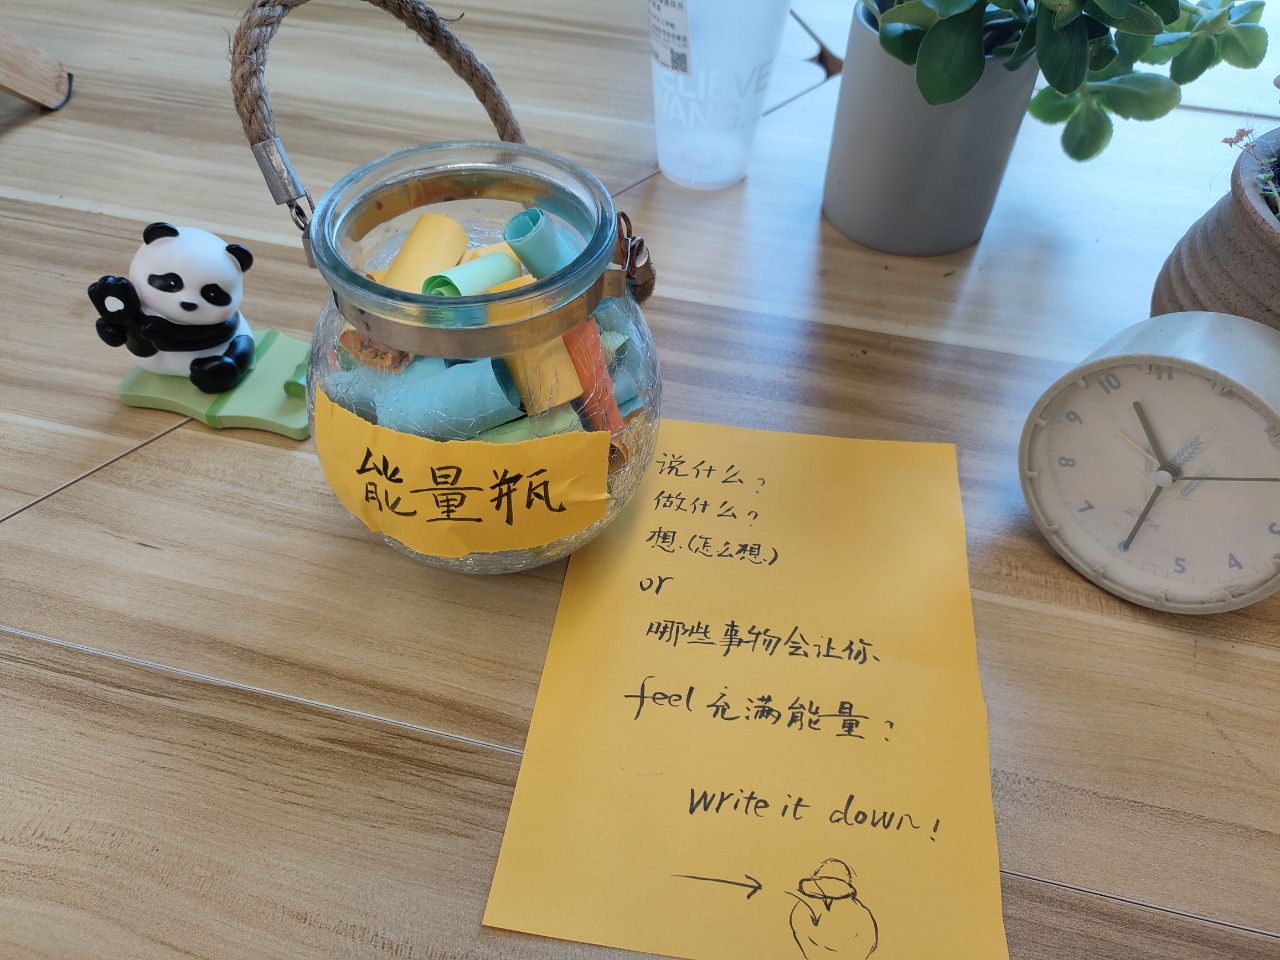 能量瓶
说什么?
做什么?
想.(怎么想.)
or
哪些事物会让你、
feel 充满能量?
Write it down!
10 11
9
8
7
5
4